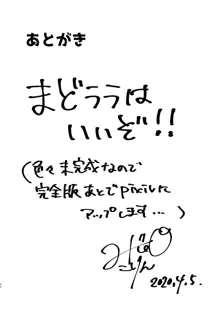 あとがき
まどうらは
いいぞ!!
(色々未完成なので
完全版あとでpixivに
アップします…)
2020.4.5.